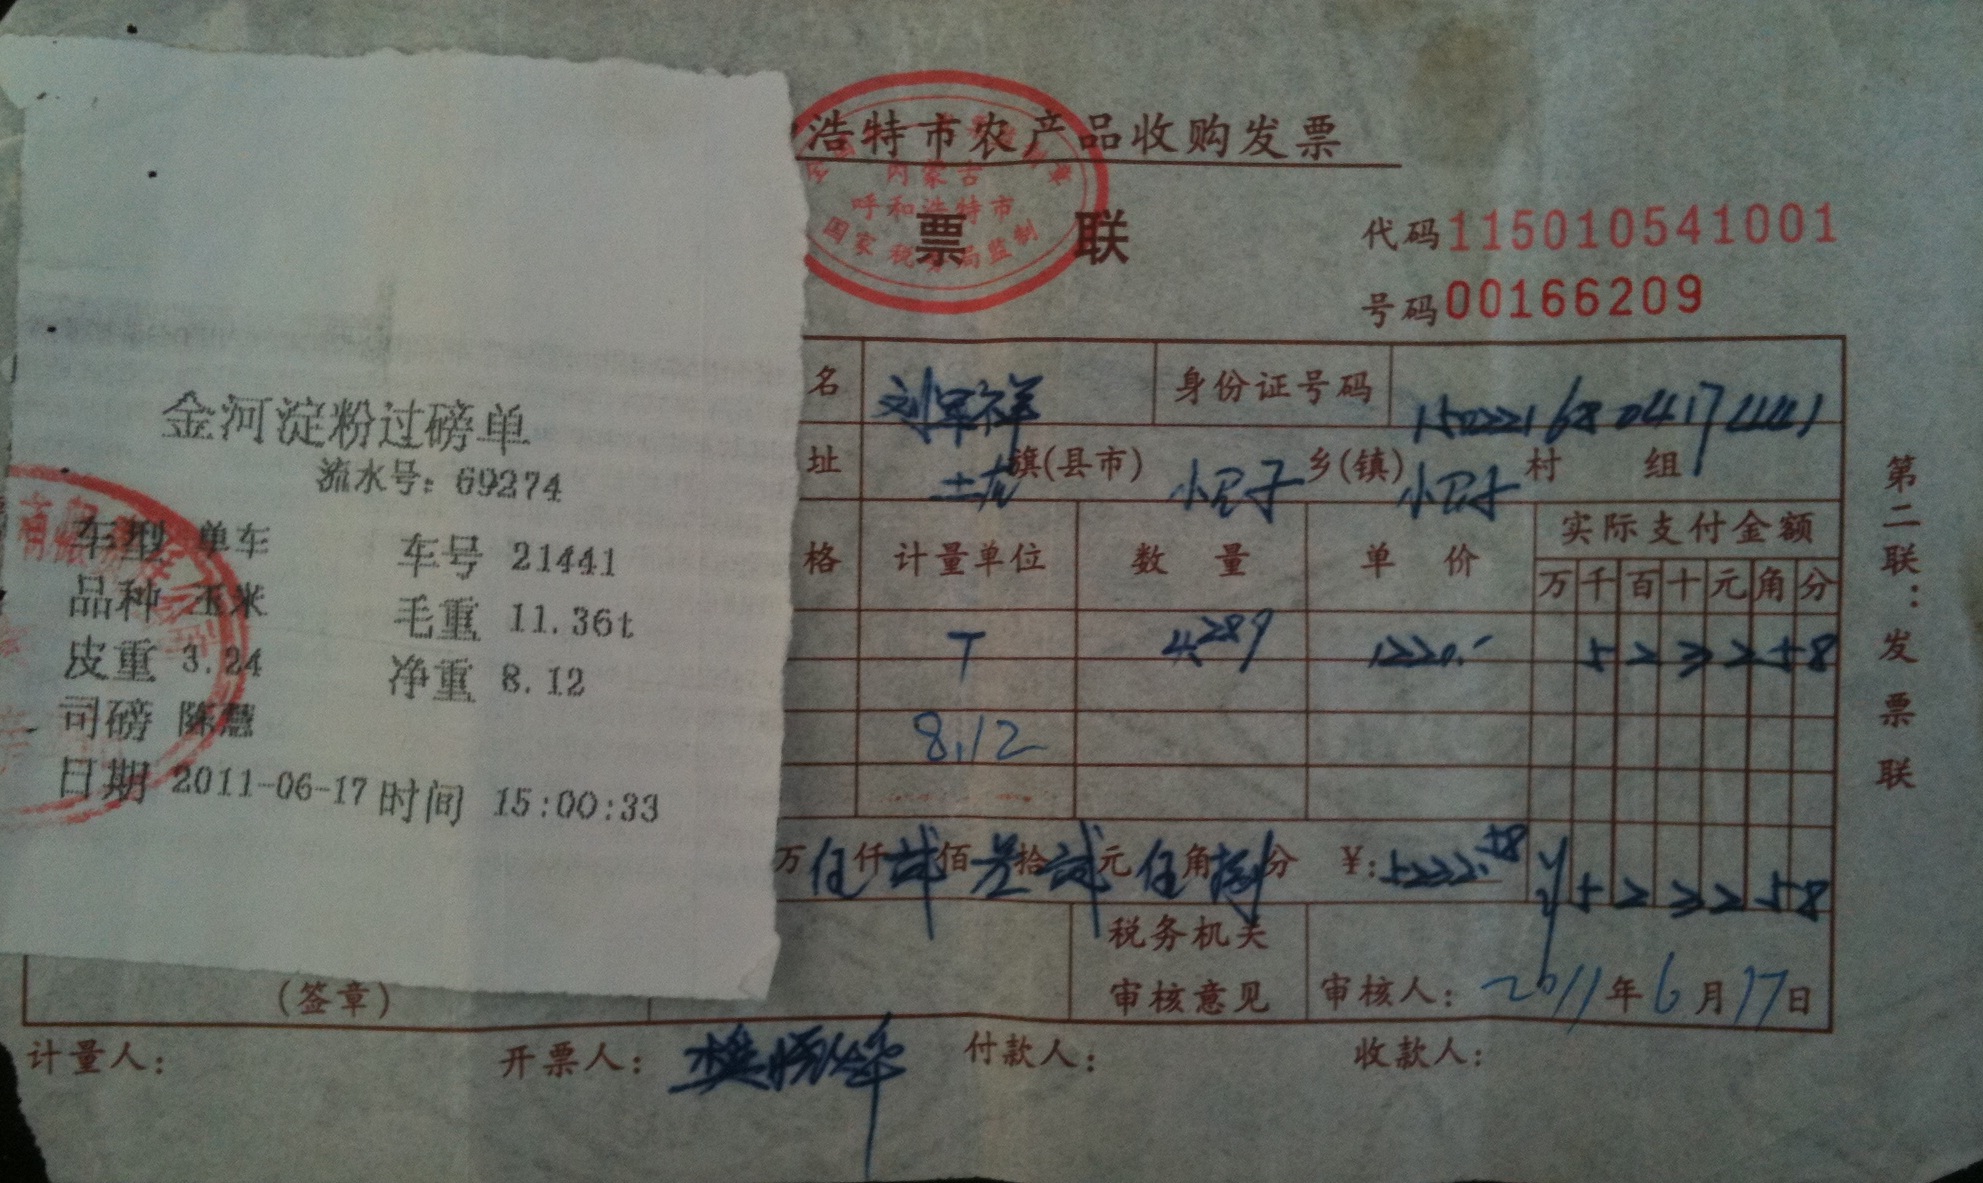 浩特市农产品收购发票
内蒙古
呼和浩特市
国家税务局监制
票 联
代码115010541001
号码00166209
金河淀粉过磅单
流水号: 69274
车型 单车 车号 21441
品种 玉米 毛重 11.36t
皮重 3.24 净重 8.12
司磅 陈慧
日期 2011-06-17 时间 15:00:33
名 刘军祥 身份证号码
址 土左 旗(县市) 小召子 乡(镇) 小召子 村 组
格 计量单位 数量 单价 实际支付金额
万 千 百 十 元 角 分
T 4.289 1220.- 5 2 3 2 5 8
8.12
万 伍 仟 贰 佰 叁 拾 贰 元 伍 角 捌 分 ¥: 5232.58 ¥ 5 2 3 2 5 8
税务机关
审核意见
(签章) 审核人: 2011年6月17日
计量人: 开票人: 付款人: 收款人:
第二联:发票联